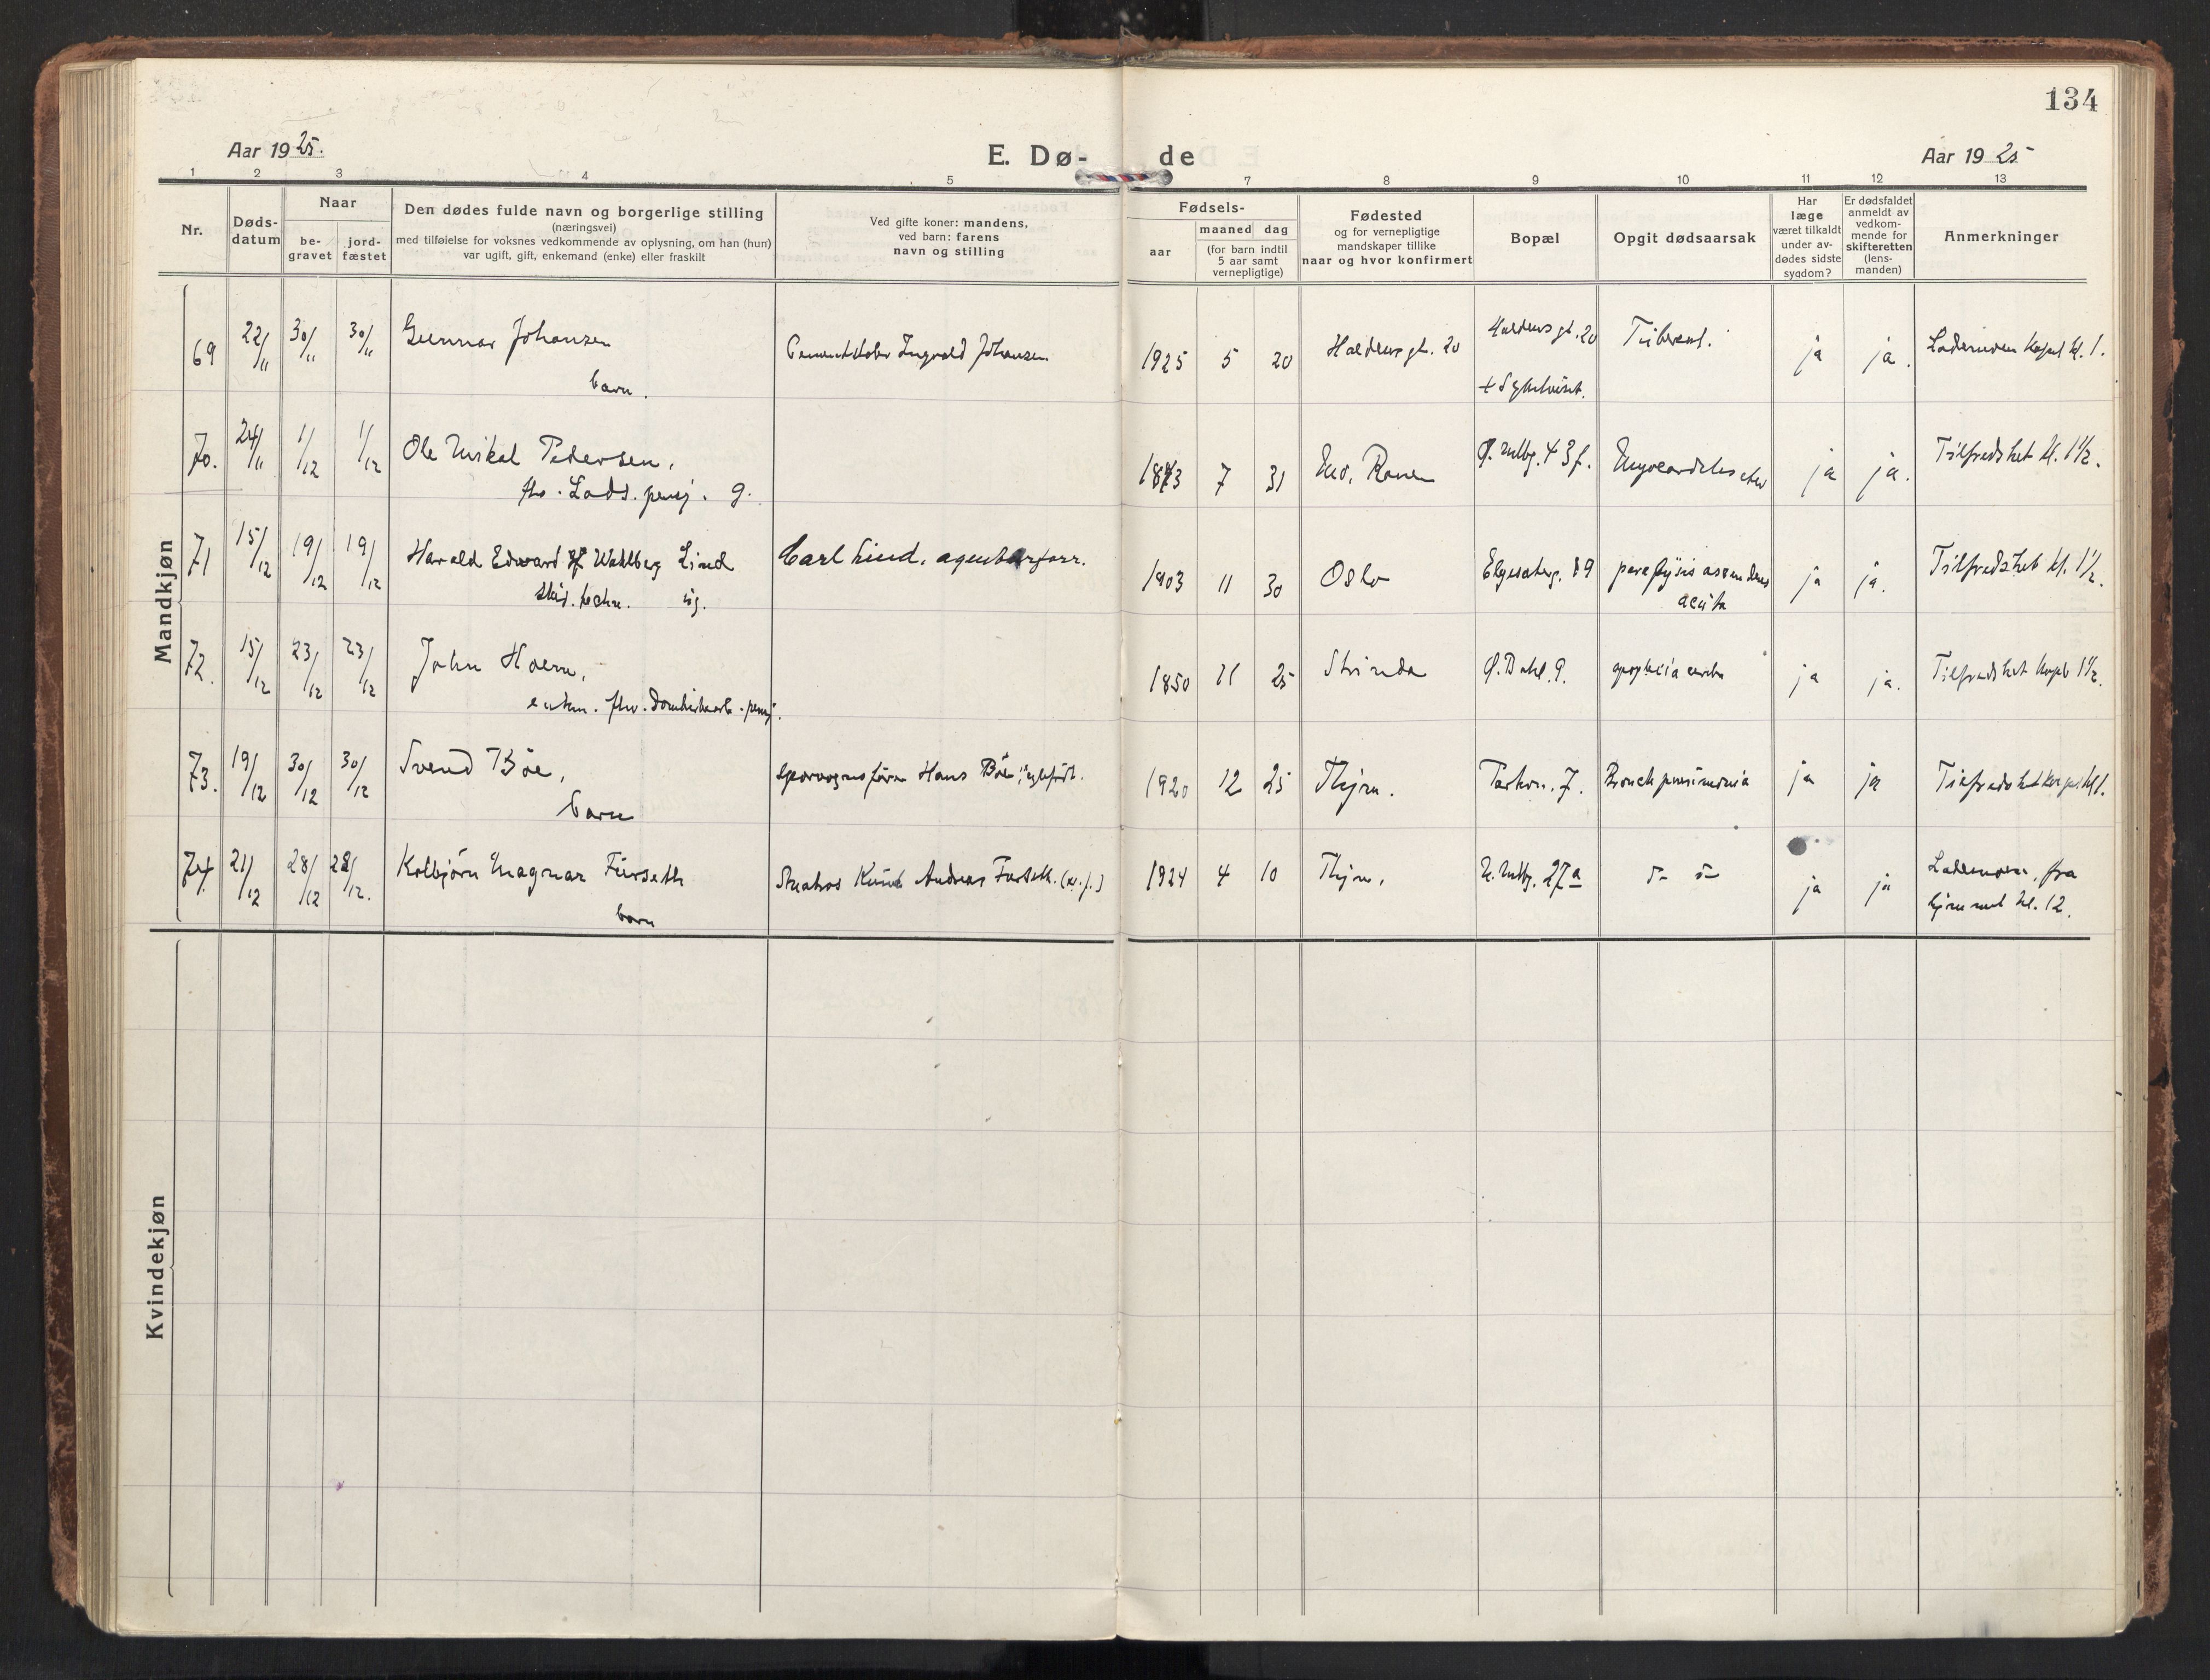 134
Aar 1925.
E. Dø-
de
Aar 1925
1 2 3 4 5 7 8 9 10 11 12 13
Nr.
Døds-
datum
Naar
be-
gravet
jord-
fæstet
Den dødes fulde navn og borgerlige stilling
(næringsvei)
med tilføielse for voksnes vedkommende av oplysning, om han (hun)
var ugift, gift, enkemand (enke) eller fraskilt
Ved gifte koner: mandens,
ved barn: farens
navn og stilling
Fødsels-
aar
maaned dag
(for barn indtil
5 aar samt
vernepligtige)
Fødested
og for vernepligtige
mandskaper tillike
naar og hvor konfirmert
Bopæl
Opgit dødsaarsak
Har
læge
været tilkaldt
under av-
dødes sidste
sygdom?
Er dødsfaldet
anmeldt av
vedkom-
mende for
skifteretten
(lens-
manden)
Anmerkninger
Mandkjøn
69 22/11 30/11 30/11 Gunnar Johansen Ingvald Johansen 1925 5 20 Haldens gt. 20 Haldens gt. 20 ja ja. Lademoen Kapel kl. 1.
barn.
70. 24/11 1/12 1/12 Ole Mikal Pedersen, 1843 7 31 Mo, Ranen ja ja. Tilfredshet kl. 1½.
fhv. Lods. pensj. g.
71 15/12 19/12 19/12 Harald Edvard Wahlberg Lind Carl Lind, agenturforr. 1903 11 30 Oslo ja ja. Tilfredshet kl. 1½.
ug. acuta
72. 15/12 23/12 23/12 John Hoem, 1850 11 25 Strinda ja ja. Tilfredshet Kapel 1½.
enkem. fhv. pensj.
73. 19/12 30/12 30/12 Svend Böe, Sporvognsfører Hans Böe 1920 12 25 Thjem. 7. Bronchpneumonia ja ja Tilfredshet kapel kl 1.
barn
74. 21/12 28/12 28/12. Kolbjörn Magnar Furseth Knut Andreas Furseth. 1924 4 10 Thjem. 27a ja ja Lademoen, fra
barn hjemmet kl. 12.
Kvindekjøn